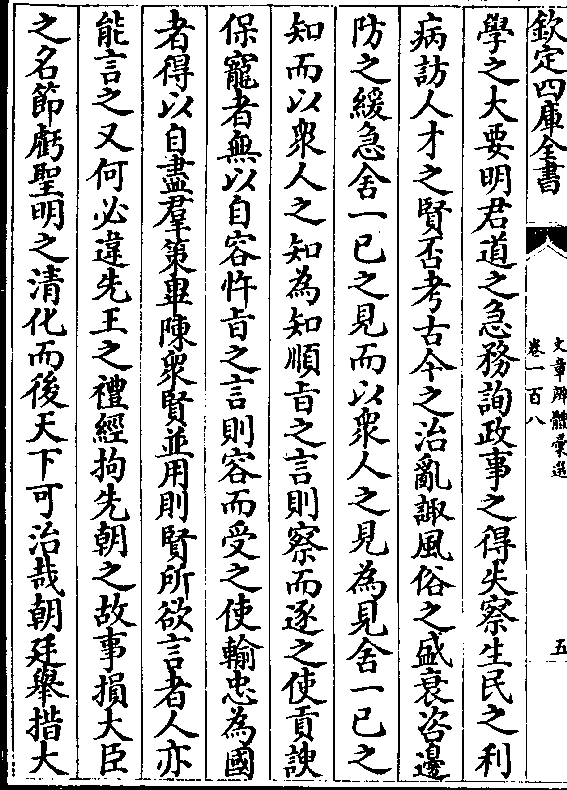 欽定四庫全書
文章辨體彙選
卷一百八
五
學之大要明君道之急務詢政事之得失察生民之利
病訪人才之賢否考古今之治亂諏風俗之盛衰咨邊
防之緩急舍一已之見而以衆人之見為見舍一已之
知而以衆人之知為知順㫖之言則察而逐之使貢諛
保寵者無以自容忤㫖之言則容而受之使輸忠為國
者得以自盡羣策畢陳衆賢並用則賢所欲言者人亦
能言之又何必違先王之禮經拘先朝之故事損大臣
之名節虧聖明之清化而後天下可治哉朝廷舉措大